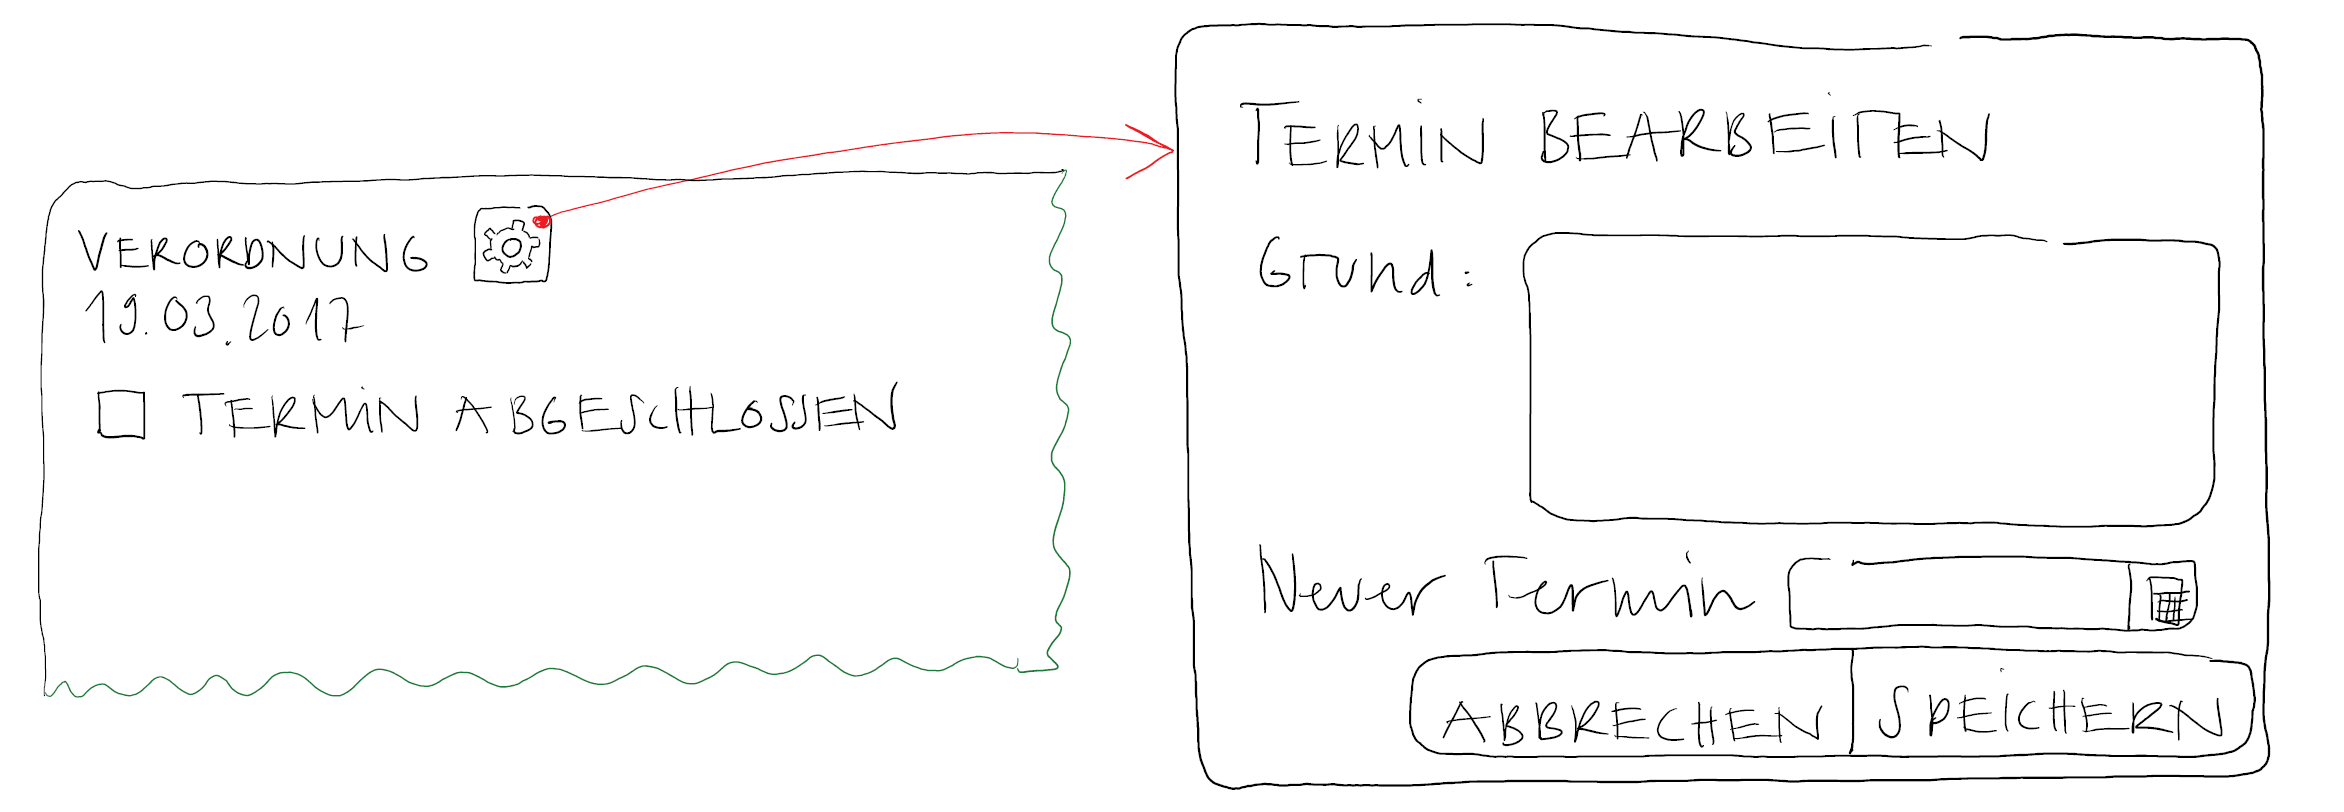 VERORDNUNG
19.03.2017
TERMIN ABGESCHLOSSEN
TERMIN BEARBEITEN
Grund:
Neuer Termin
ABBRECHEN
SPEICHERN